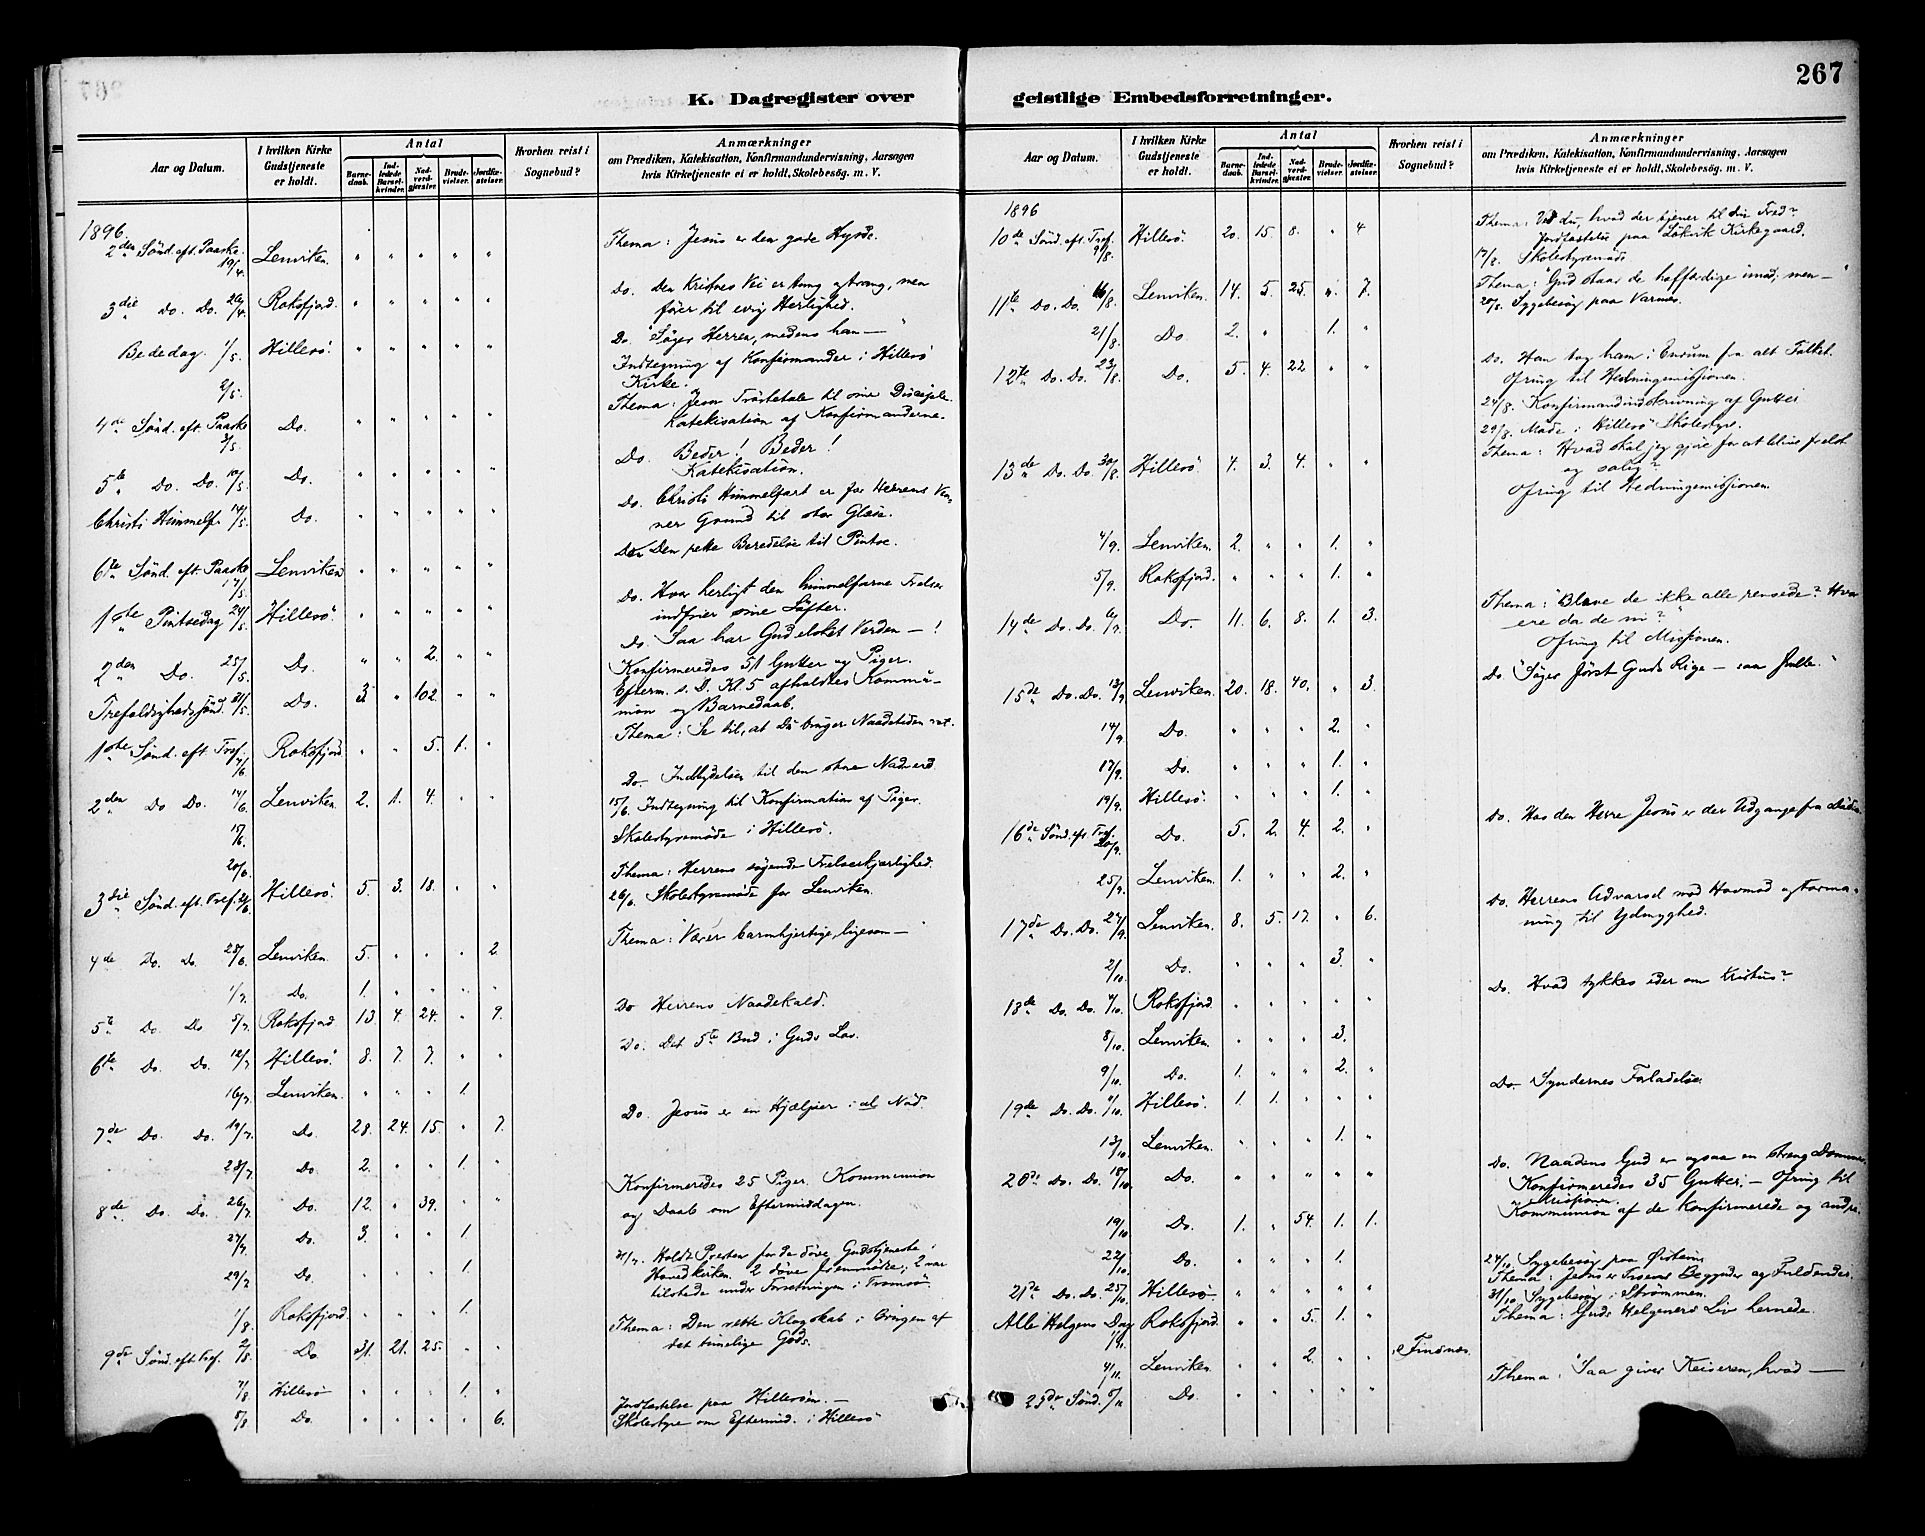 267
K. Dagregister over geistlige Embedsforretninger.
Aar og Datum. I hvilken Kirke Gudstjeneste er holdt. Antal Barnedaab. Indledede Barselkvinder. Nadverdgjester. Brudevielser. Jordfæstelser. Hvorhen reist i Sognebud? Anmærkninger om Prædiken, Katekisation, Konfirmandundervisning, Aarsagen hvis Kirketjeneste ei er holdt, Skolebesøg. m. V.
1896.
2den Sönd. eft. Paaske 19/4. Lenviken. " " " " " Thema: Jesus er den gode Hyrde.
3die Do. Do. 26/4. Roksfjord. " " " " " Do. Den Kristnes Vei er trang, men
fører til evig Herlighed.
Bededag. 1/5. Hillesö. " " " " " Do. "Søger Herren, medens han —"
2/5. Indtegning af Konfirmander i Hillesö
Kirke.
4de Sönd. eft. Paaske 3/5. Do. " " " " Thema: Jesu Trøstetale til sine Disciple.
Katekisation af Konfirmanderne.
5te Do. Do. 10/5. Do. " " " " " Do. Beder! Beder!
Katekisation.
Christi Himmelf. 14/5. Do. " " " " " Do. Christi Himmelfart er for Herrens Ven-
ner Grund til stor Glæde.
6te Sönd. eft. Paaske 17/5. Lenviken " " " " " Do. Den rette Beredelse til Pintse.
1ste Pintsedag 24/5. Hillesö. " " " " " Do. Hvor herligt den himmelfarne Frelser
indfrier sine Løfter.
2den Do. 25/5. Do. " " 2. " " Do. Saa har Gud elsket Verden — !
Trefoldighedssönd. 31/5. Do. 3 " 102. " " Konfirmeredes 51 Gutter og Piger.
Efterm. s. D. Kl. 5 afholdtes Kommu-
nion og Barnedaab.
1ste Sönd. eft. Tref. 7/6. Roksfjord. " " 5. 1. " Thema: Se til, at Du bruger Naadetiden ret.
2den Do Do. 14/6. Lenviken. 2. 1. 4. " " Do. Indbydelse til den store Nadverd.
15/6. 15/6 Indtegning til Konfirmation af Piger.
20/6. Skolestyremøde i Hillesö.
3die Sönd. eft. Tref. 21/6. Hillesö. 5. 3. 18. " " Thema: Herrens søgende Frelserkjærlighed.
26/6. Skolestyremøde for Lenviken.
4de Do. Do. 28/6. Lenviken. 5. " " " 2. Thema: "Værer barmhjertige, ligesom —"
1/7. Do. 1. " " " "
5te Do. Do 5/7. Roksfjord. 13. 4. 24. " 9. Do Herrens Naadekald.
6te Do. Do. 12/7. Hillesö. 8. 7. 7. " " Do. Det 5te Bud i Guds Lov.
16/7. Lenviken. " " " 1.
7de Do. Do. 19/7. Do. 28. 24. 15. " 7. Do. Jesus er en Hjælper i al Nød.
23/7. Do. 2. " " 1. "
8de Do. Do. 26/7. Do. 12. " 39. " " Konfirmeredes 25 Piger. Kommunion
og Daab om Eftermiddagen.
27/7. Do. 3. " " 1.
29/7 Do. " " " 1. 31/7. Holdt Presten for de døve Gudstjeneste i
Hovedkirken. 2 døve fremmødte; 2 var
tilstede under Forretningen i Tromsö.
1/8. Roksfjord. " " " 1.
9de Sönd. eft. Tref. 2/8. Do. 31. 21. 25. " " Thema: Den rette Klogskab i Brugen af
det timelige Gods.
7/8 Hillesö " " " 1. "
8/8 Do. " " " " 6. Jordfæstelse paa Hillesöen. —
Skolestyre om Eftermid. i Hillesö
Aar og Datum. I hvilken Kirke Gudstjeneste er holdt. Antal Barnedaab. Indledede Barselkvinder. Nadverdgjester. Brudevielser. Jordfæstelser. Hvorhen reist i Sognebud? Anmærkninger om Prædiken, Katekisation, Konfirmandundervisning, Aarsagen hvis Kirketjeneste ei er holdt, Skolebesøg. m. V.
1896
10de Sönd. eft. Tref. 9/8. Hillesö. 20. 15. 8. " 4 Thema: Ved du, hvad der tjener til din Fred?
Jordfæstelse paa Løkvik Kirkegaard.
17/8. Skolestyremöde
11te Do. Do. 16/8. Lenviken. 14. 5. 25. " 7. Thema: "Gud staar de hoffærdige imod; men —"
20/8. Sygebesøg paa Varnes.
21/8. Do 2. " 1. "
12te Do. Do. 23/8. Do. 5. 4. 22 " " Do. Han tog ham i Enrum fra alt Folket.
Ofring til Hedningemissionen.
24/8. Konfirmandindskrivning af Gutter
29/8. Møde i Hillesö Skolestyre.
13de Do. Do. 30/8. Hillesö. 4. 3. 4. " " Thema: Hvad skal jeg gjøre for at blive frelst
og salig?
Ofring til Hedningemissionen
4/9. Lenviken. 2. " " 1. "
5/9. Roksfjord. " " " 1. "
14de Do. Do. 6/9. Do. 11. 6. 8. 1. 3. Thema: "Bleve de ikke alle rensede? Hvor
ere da de ni?"
Ofring til Missionen.
15de Do. Do. 13/9. Lenviken. 20. 18. 40. " 3. Do "Søger først Guds Rige — saa fulle."
14/9. Do. " " " 2. "
17/9. Do. " " " 1. "
19/9. Hillesö. " " " 1. "
16de Sönd. eft. Tref. 20/9. Do. 5. 2. 4. 2. " Do. Hos den Herre Jesus er der Udgange fra Døden.
25/9. Lenviken. 1. " " 2. "
17de Do. Do. 27/9. Lenviken. 8. 5. 17. " 6. Do. Herrens Advarsel mod Hovmod og Forma-
ning til Ydmyghed.
2/10. Do. " " " 3. "
18de Do. Do. 4/10. Roksfjord. " " " " " Do. Hvad tykkes eder om Kristus?
8/10. Lenviken. " " " 3.
9/10. Do. 1. " " 2. "
19de Do. Do. 11/10. Hillesö. 1. 1. " " " Do. Syndernes Forladelse
13/10 Lenviken. " " " 1. "
20de Do. Do. 18/10. Do. " " " " Do. Naadens Gud er ogsaa en streng Dommer.
Konfirmeredes 35 Gutter. — Ofring til
Missionen.
19/10 Do. 1. " 54. 1. 1. Kommunion af de konfirmerede og andre.
22/10. Do. " " " 1. 24/10. Sygebesøg paa
21de Do. Do. 25/10. Hillesö. " " " " " Thema: Jesus er Troens Begynder og Fuldender.
31/10 Sygebesøg i Strømmen.
Alle Helgens Dag 1/11. Roksfjord. " " 5. 1. " Thema: Guds Helgeners Liv hernede.
4/11. Lenviken. " " 2. " " Finsnes.
23de Sönd. 8/11 Do. " " " " " Thema: "Saa giver Keiseren, hvad —"